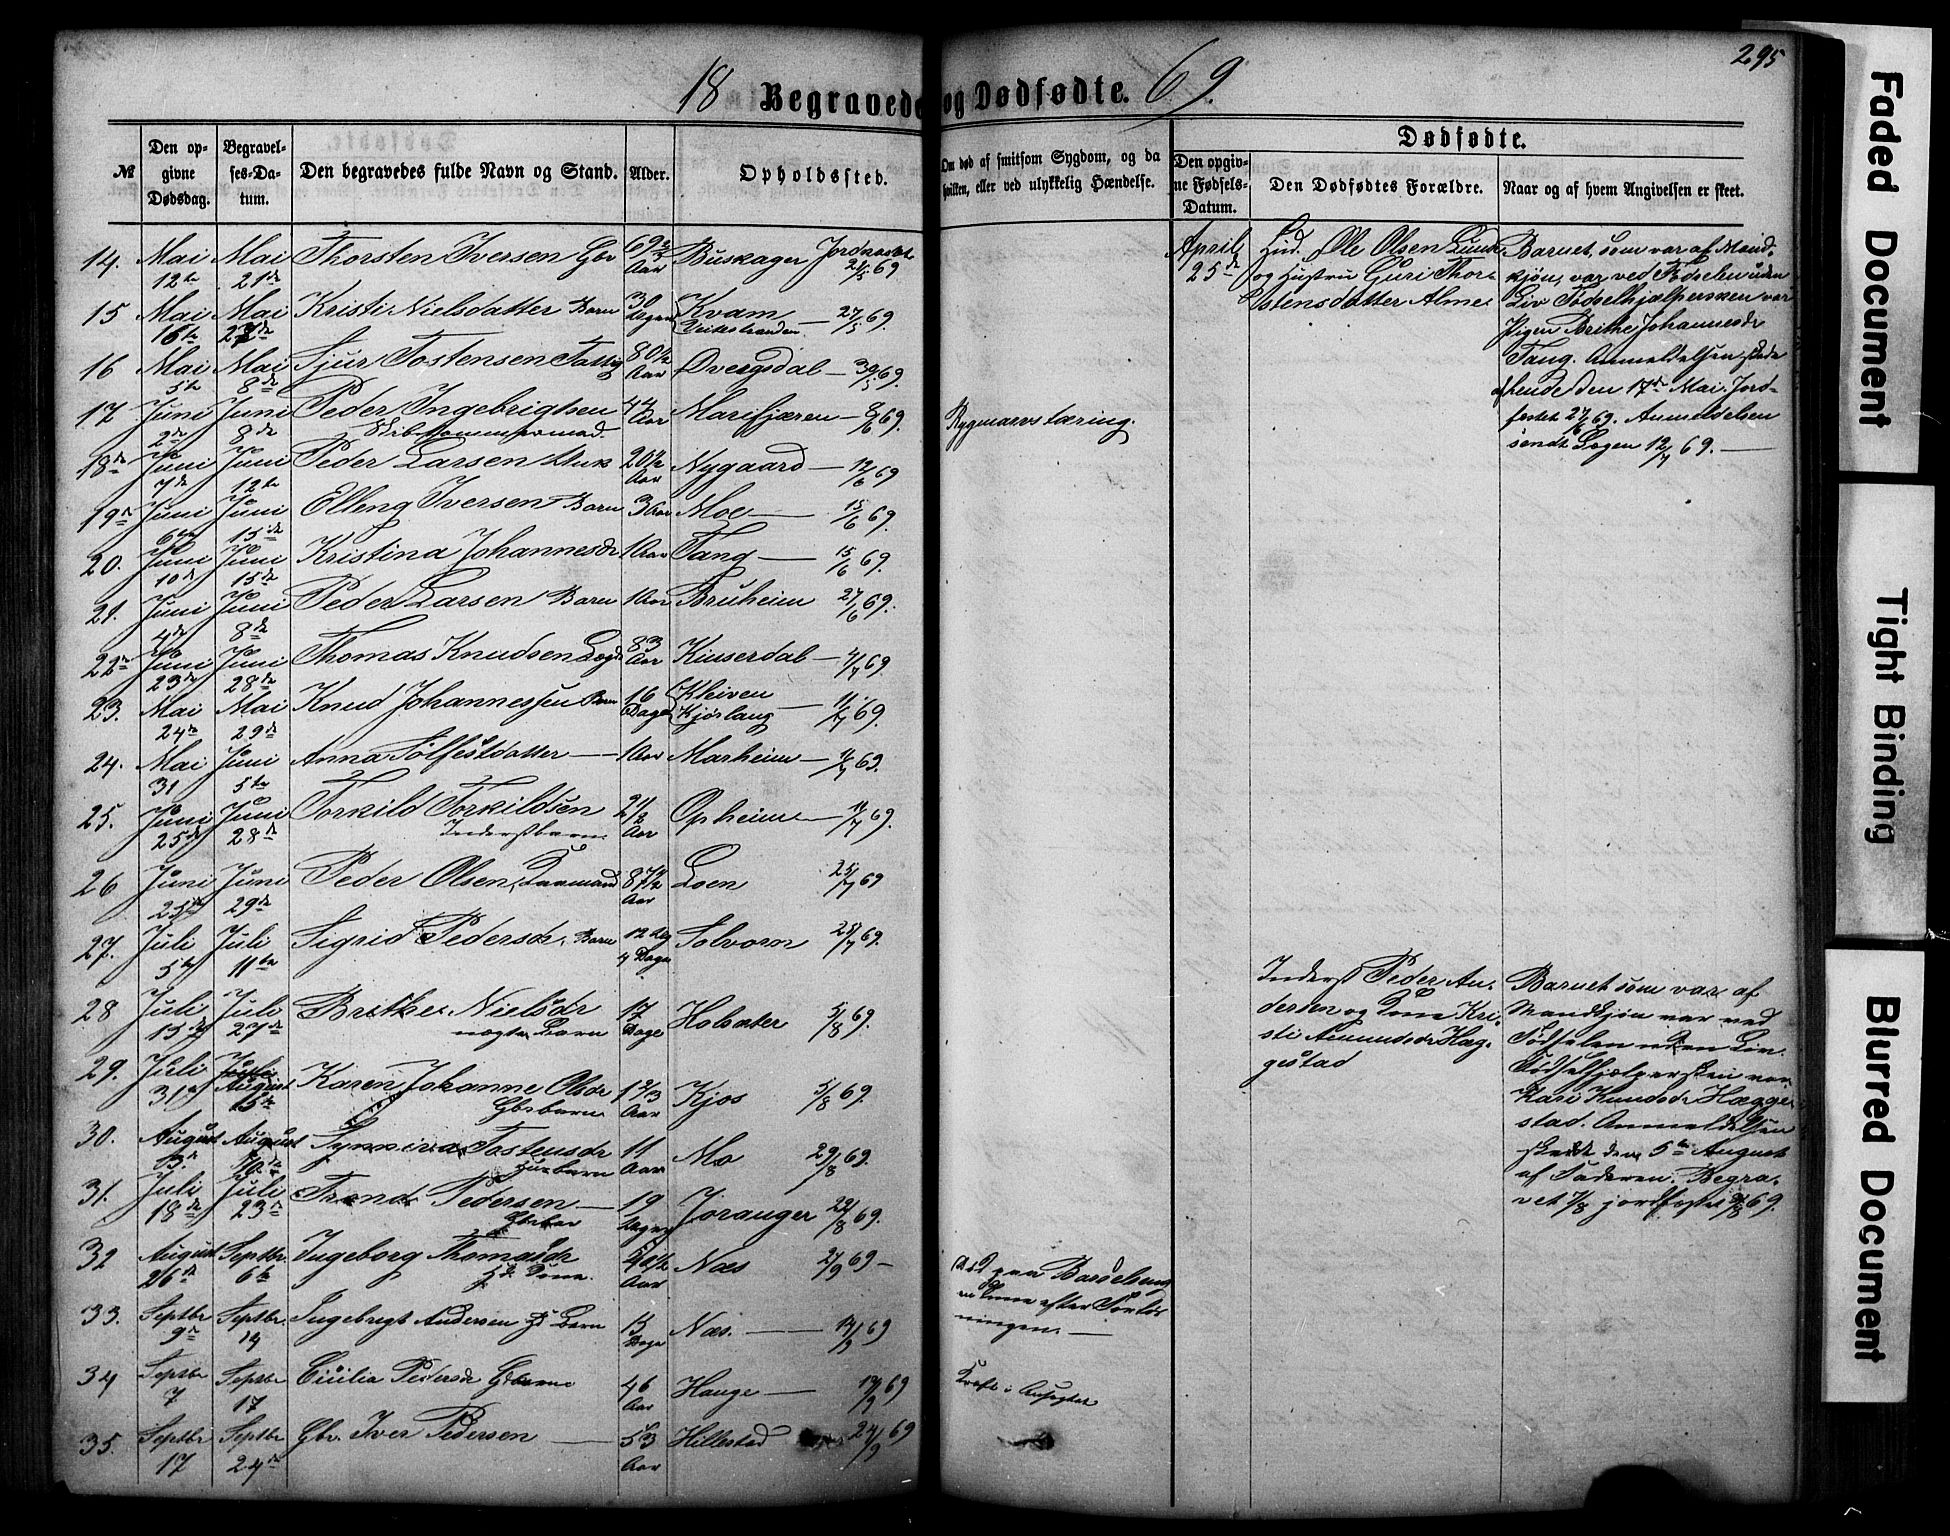 295
18 Begravede og Dødfødte. 69.
№
Den opgivne Dødsdag.
Begravelses-Datum.
Den begravedes fulde Navn og Stand.
Alder.
Opholdssted.
Om død af smitsom Sygdom, og da hvilken, eller ved ulykkelig Hændelse.
Dødfødte.
Den opgivne Fødsels-Datum.
Den Dødfødtes Forældre.
Naar og af hvem Angivelsen er skeet.
14. Mai 12te Mai 21de Thorsten Iversen Gbr 69 Aar Buskager Jordkastet 21/5 69
15 Mai 16te Mai 27de Kristi Nielsdatter Barn 30 Dage Kvam Veitestranden — 27/5 69.
16 Mai 5te Mai 8de Sjur Tostensen 80 1/2 Aar Dvergsdal — 30/5 69.
17 Juni 2de Juni 8de Peder Ingebrigtsen 44 Aar Marifjæren — 8/6 69. Rygmarvstæring.
18de Juni 7de Juni 12te Peder Larsen 20 1/2 Aar Nygaard — 12/6 69
19de Juni 6te Juni 15de Elling Iversen Barn 3 Aar Moe — 15/6 69.
20. Juni 10de Juni 15de Kristina Johannesdr 1 Aar Tang — 15/6 69.
21. Juni 4de Juni 8de Peder Larsen Barn 1 Aar Bruheim 27/6 69.
22de Juni 23de Juni 28de Thomas Knudsen Lægd 83 Aar Kinserdal — 4/7 69.
23. Mai 24de Mai 29de Knud Johannessen Barn 16 Dage Kleiven Kjørlaug — 11/7 69.
24. Mai 31 Juni 5te Anna Sølfestdatter — 1 Aar Marheim — 11/7 69.
25. Juni 25de Juni 28de Torkild Torkildsen Inderstbarn 2 1/2 Aar Opheim — 14/7 69.
26 Juni 25de Juni 29de Peder Olsen, Kaarmand 87 1/2 Aar Loen 25/7 69
27. Juli 5te Juli 11te Sigrid Pedersdr, Barn 4 Dage Solvorn 25/7 69.
28 Juli 15de Juli 27de Brithe Nielsdr uægte Barn 17 Dage Holsæter 5/8 69.
29. Juli 31 August 15de Karen Johanne Olsdr Gbrbarn 1 2/3 Aar Kjos 5/8 69
30. August August Synneva Tostensdr Husbarn 11 Aar Mo 29/8 69.
31. Juli 18de Juli 23de Trond Pedersen — 19 Dage Joranger 22/8 69.
32 August 26de Septbr. 6te Ingeborg Thomasdr Hd. Kone. Aar Næs 2/9 69 —
33. Septbr 9de Septbr. 14 Ingebrigt Andersen Hd Barn 13 Dage Næs. — 14/9 69
34 Septbr 7 Septbr 17 Cicilia Pedersdr Gbrkone 46 Aar Hauge — 17/9 69
35. Septbr 17 Septbr 24de Gbr. Iver Pedersen — 53 Aar Hillestad 24/9 69
Død paa Barselseng
efter Forløs
ningen. —
Kræft i Ansigtet
April 25de
Hud. Ole Olsen Lunde
og Hustru Guri Thor-
stensdatter Alme
Barnet, som var af Mand-
kjøn, var ved Fødselen uden
Liv Fødselhjælpersken var
Pigen Brithe Johannesdr
Tang. Anmeldelsen skede
den 17de Mai. Jord-
festet 27/6 69. Anmeldelsen
sendt Lægen 12/7 69. —
Inderst Peder An-
dersen og Kone Kri-
sti Amundsdr Hæg-
gestad
Barnet som var af
Mandkjøn var ved
Fødselen uden Liv.
Fødselhjælpersken var
Kari Knudsdr Hægge-
stad. Anmeldelsen
skede den 5te August
af Faderen. Begra-
vet 7/8 jordfæstet 8/8 69.
Faded Document
Tight Binding
Blurred Document